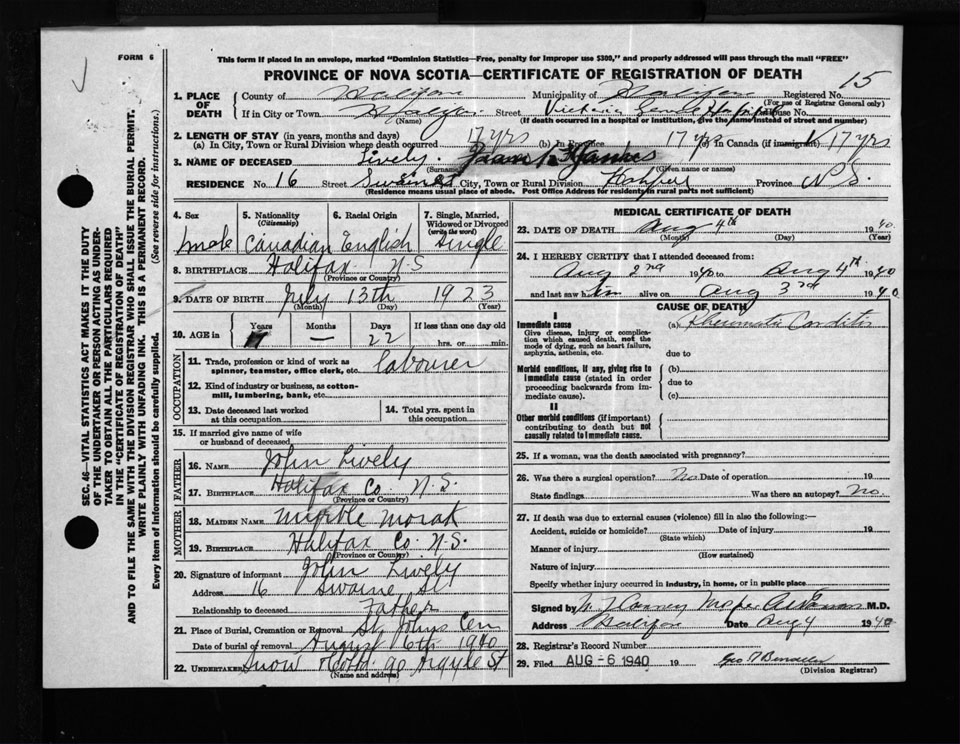 FORM 6
This form if placed in an envelope, marked "Dominion Statistics—Free, penalty for improper use $300," and properly addressed will pass through the mail "FREE"
PROVINCE OF NOVA SCOTIA—CERTIFICATE OF REGISTRATION OF DEATH
15
1. PLACE OF DEATH County of Halifax Municipality of Halifax Registered No.
(For use of Registrar General only)
If in City or Town Halifax Street Victoria General Hospital House No.
(Name) (If death occurred in a hospital or institution, give the name instead of street and number)
2. LENGTH OF STAY (in years, months and days)
(a) In City, Town or Rural Division where death occurred 17 yrs (b) In Province 17 yrs (c) In Canada (if immigrant) 17 yrs
3. NAME OF DECEASED Lively.
(Surname) (Given name or names)
RESIDENCE No. 16 Street City, Town or Rural Division Halifax Province N.S.
(Residence means usual place of abode. Post Office Address for residents in rural parts not sufficient)
4. Sex male
5. Nationality (Citizenship) Canadian
6. Racial Origin English
7. Single, Married, Widowed or Divorced (write the word) Single
8. BIRTHPLACE Halifax N.S
(Province or Country)
9. DATE OF BIRTH July 13th 1923
(Month) (Day) (Year)
10. AGE in Years 17 Months — Days 22 If less than one day old hrs. or min.
OCCUPATION
11. Trade, profession or kind of work as spinner, teamster, office clerk, etc. Labourer
12. Kind of industry or business, as cotton-mill, lumbering, bank, etc.
13. Date deceased last worked at this occupation
14. Total yrs. spent in this occupation
15. If married give name of wife or husband of deceased
FATHER
16. NAME John Lively
17. BIRTHPLACE Halifax Co N.S.
(Province or Country)
MOTHER
18. MAIDEN NAME Myrtle Morak
19. BIRTHPLACE Halifax Co N.S.
(Province or Country)
20. Signature of informant John Lively
Address 16 Swaine St
Relationship to deceased Father
21. Place of Burial, Cremation or Removal St Johns Cem
Date of burial or removal August 6th 1940
22. UNDERTAKER Snow & Co Ltd 90 Argyle St
(Name and address)
MEDICAL CERTIFICATE OF DEATH
23. DATE OF DEATH Aug 4th 1940.
(Month) (Day) (Year)
24. I HEREBY CERTIFY that I attended deceased from:
Aug 2nd 1940 to Aug 4th 1940
and last saw him alive on Aug 3rd 1940
CAUSE OF DEATH
I
Immediate cause
Give disease, injury or complication which caused death, not the mode of dying, such as heart failure, asphyxia, asthenia, etc.
(a) Rheumatic Carditis
due to
Morbid conditions, if any, giving rise to immediate cause (stated in order proceeding backwards from immediate cause).
(b)
due to
(c)
II
Other morbid conditions (if important) contributing to death but not causally related to immediate cause.
25. If a woman, was the death associated with pregnancy?
26. Was there a surgical operation? No Date of operation 19
State findings Was there an autopsy? No.
27. If death was due to external causes (violence) fill in also the following:—
Accident, suicide or homicide? Date of injury 19
(State which)
Manner of injury
(How sustained)
Nature of injury
Specify whether injury occurred in industry, in home, or in public place
Signed by M.D.
Address Halifax Date Aug 4 1940
28. Registrar's Record Number
29. Filed AUG -6 1940 19
(Division Registrar)
SEC. 46—VITAL STATISTICS ACT MAKES IT THE DUTY
OF THE UNDERTAKER OR PERSON ACTING AS UNDER-
TAKER TO OBTAIN ALL THE PARTICULARS REQUIRED
IN THE "CERTIFICATE OF REGISTRATION OF DEATH"
AND TO FILE THE SAME WITH THE DIVISION REGISTRAR WHO SHALL ISSUE THE BURIAL PERMIT.
WRITE PLAINLY WITH UNFADING INK. THIS IS A PERMANENT RECORD.
Every item of information should be carefully supplied. (See reverse side for instructions.)